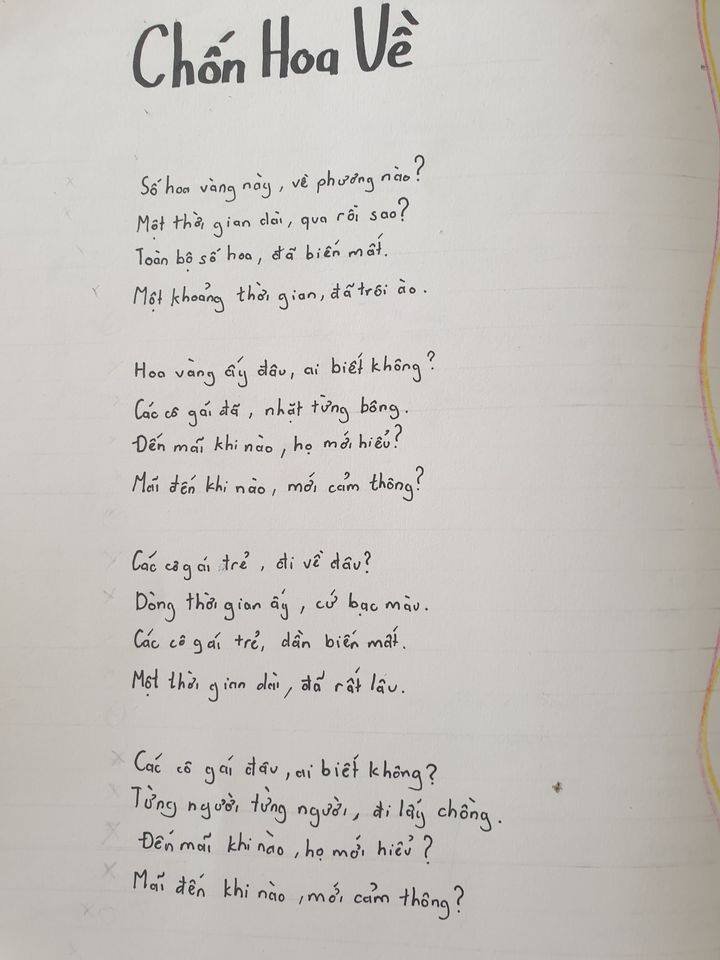 Chốn Hoa Về
Số hoa vàng này, về phương nào?
Một thời gian dài, qua rồi sao?
Toàn bộ số hoa, đã biến mất.
Một khoảng thời gian, đã trôi ào.
Hoa vàng ấy đâu, ai biết không?
Các cô gái đã, nhặt từng bông.
Đến mãi khi nào, họ mới hiểu?
Mãi đến khi nào, mới cảm thông?
Các cô gái trẻ, đi về đâu?
Dòng thời gian ấy, cứ bạc màu.
Các cô gái trẻ, dần biến mất.
Một thời gian dài, đã rất lâu.
Các cô gái đâu, ai biết không?
Từng người từng người, đi lấy chồng.
Đến mãi khi nào, họ mới hiểu?
Mãi đến khi nào, mới cảm thông?